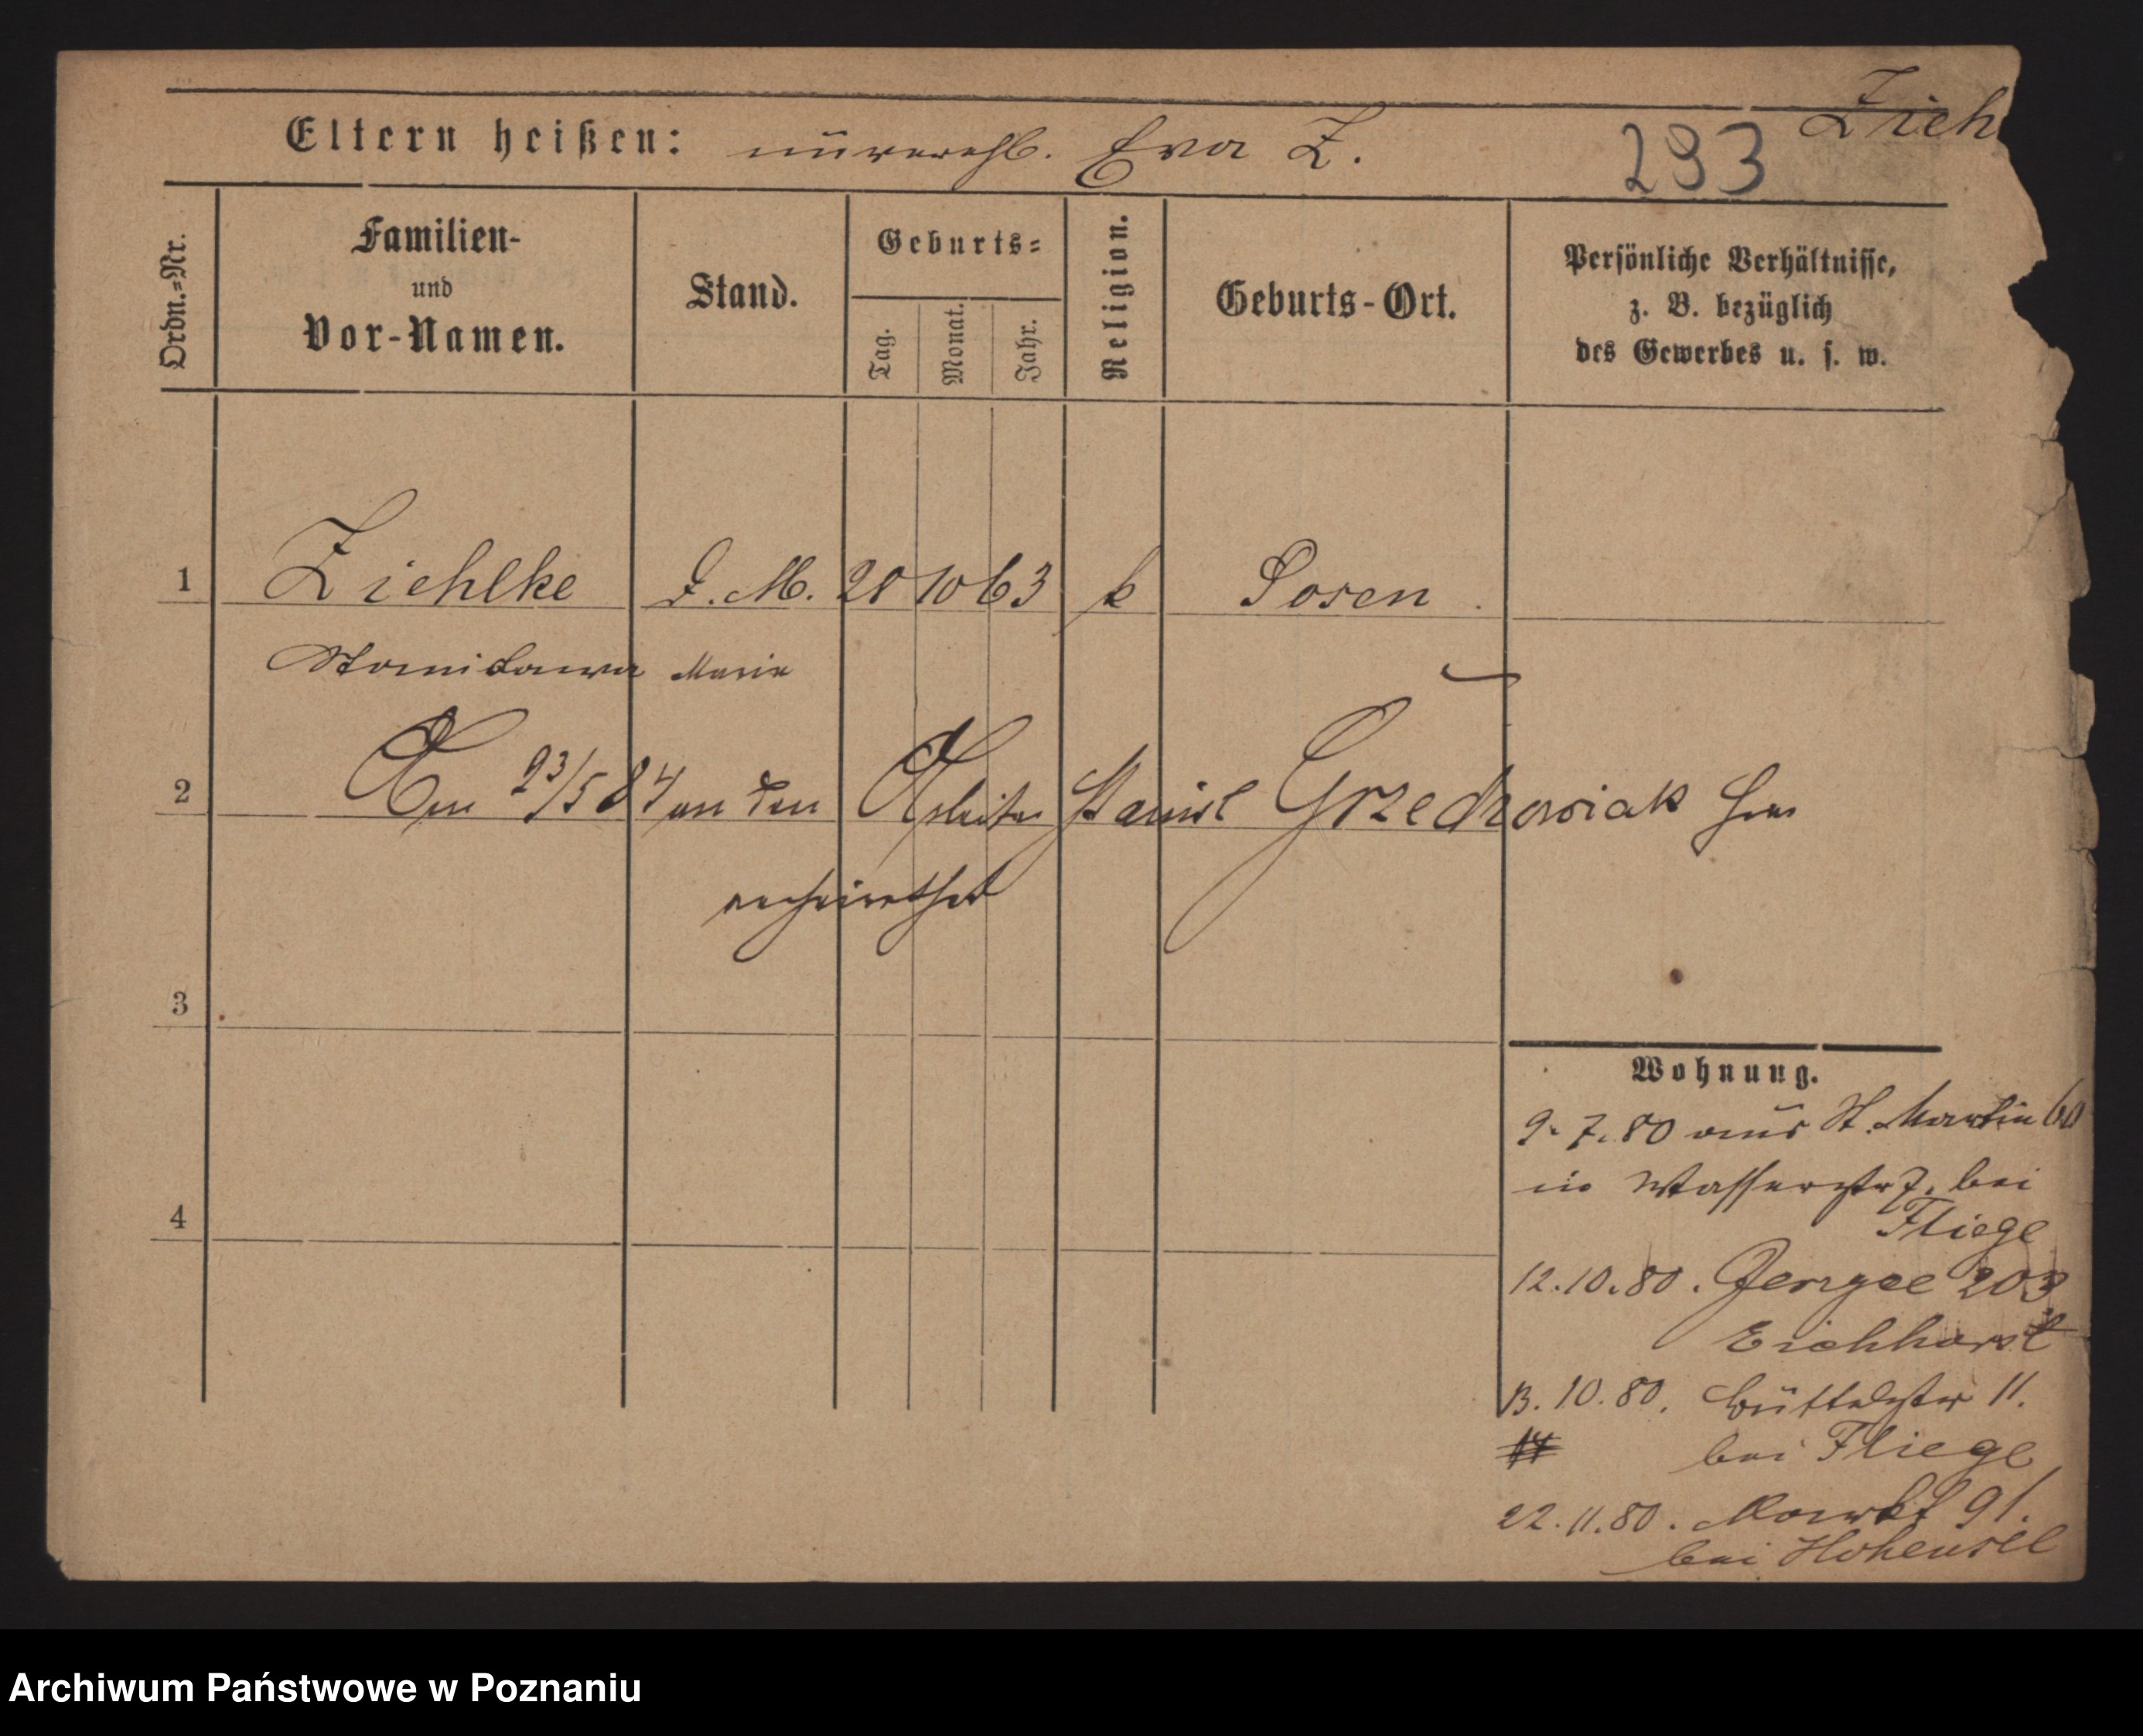 Zieh
Eltern heißen: unverehl. Eva Z.
293
Ordn.=Nr.
Familien-
und
Vor-Namen.
Stand.
Geburts=
Tag.
Monat.
Jahr.
Religion.
Geburts-Ort.
Persönliche Verhältnisse,
z. B. bezüglich
des Gewerbes u. s. w.
1 Ziehlke D. M. 28 10 63 k Posen
Stanislawa Maria
2 Am 23/5 84 an den Arbeiter Stanisl Grzedzowiak hier
verheirathet
3
4
Wohnung.
9. 7. 80 aus St. Martin 60
in Wasserstr 7. bei
Fliege
12. 10. 80. Jersyce 203
Eichhorst
13. 10. 80. Büttelstr 11.
bei Fliege
22. 11. 80. Markt 91.
bei Hohensel
Archiwum Państwowe w Poznaniu